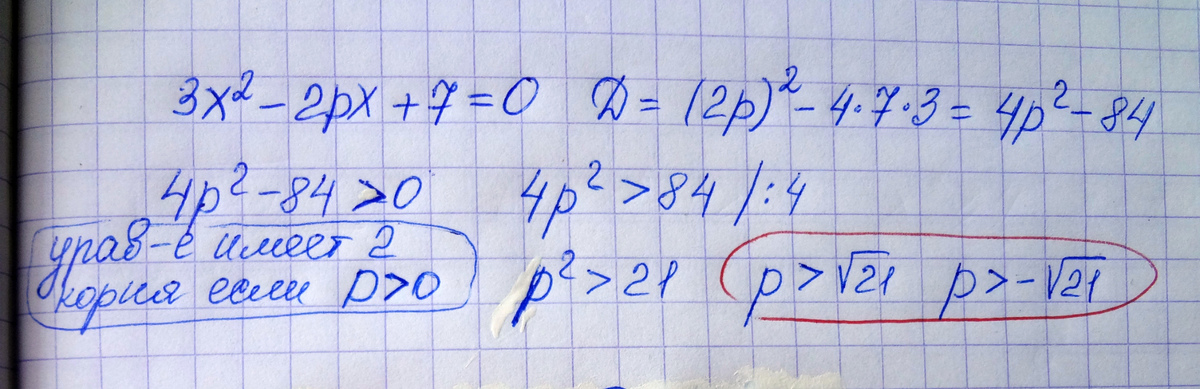 3x² - 2px + 7 = 0 D = (2p)² - 4·7·3 = 4p² - 84
4p² - 84 > 0 4p² > 84 /:4
урав-е имеет 2
корня если D>0 p² > 21 p > √21 p > -√21